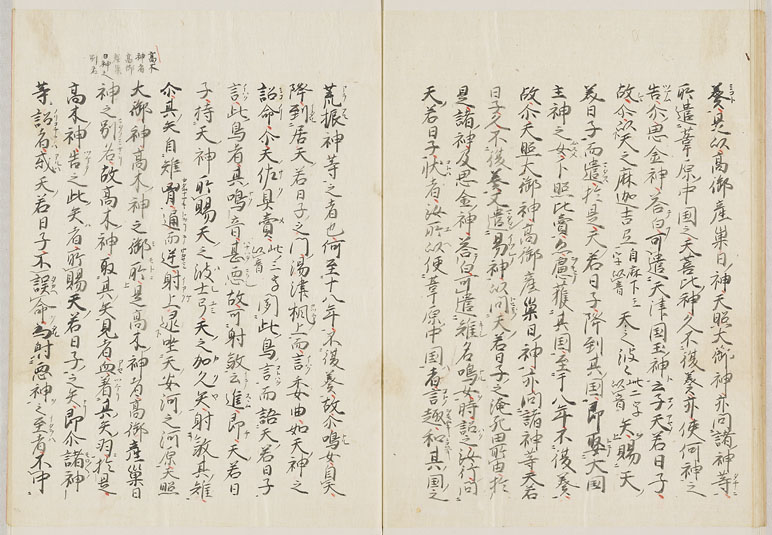 奏是以高御産巣日神天照大御神亦問諸神等
所遣葦原中国之天菩比神久不復奏亦使何神之
告尓思金神答白可遣天津国玉神之子天若日子
故尓以天之麻迦古弓自麻下三字以音天之波々此二字以音矢賜天
若日子而遣於是天若日子降到其国即娶大国
主神之女下照比賣亦慮獲其国至于八年不復奏
故尓天照大御神高御産巣日神亦問諸神等天若
日子久不復奏又遣曷神以問天若日子之淹留所由於
是諸神及思金神答白可遣雉名鳴女時詔之汝行問
天若日子状者汝所以使葦原中国者言趣和其国之
荒振神等之者也何至于八年不復奏故尓鳴女自天
降到居天若日子之門湯津楓上而言委曲如天神之
詔命尓天佐具賣此三字以音聞此鳥言而語天若日子
言此鳥者其鳴音甚悪故可射殺云進即天若日
子持天神所賜天之波士弓天之加久矢射殺其雉
尓其矢自雉胸通而逆射上逮坐天安河之河原天照
大御神高木神之御所是高木神者高御産巣日
神之別名故高木神取其矢見者血著其矢羽於是
高木神告之此矢者所賜天若日子之矢即示諸神
等詔者或天若日子不誤命為射悪神之至者不中
高木
神者
高御
産巣
日神之
別名